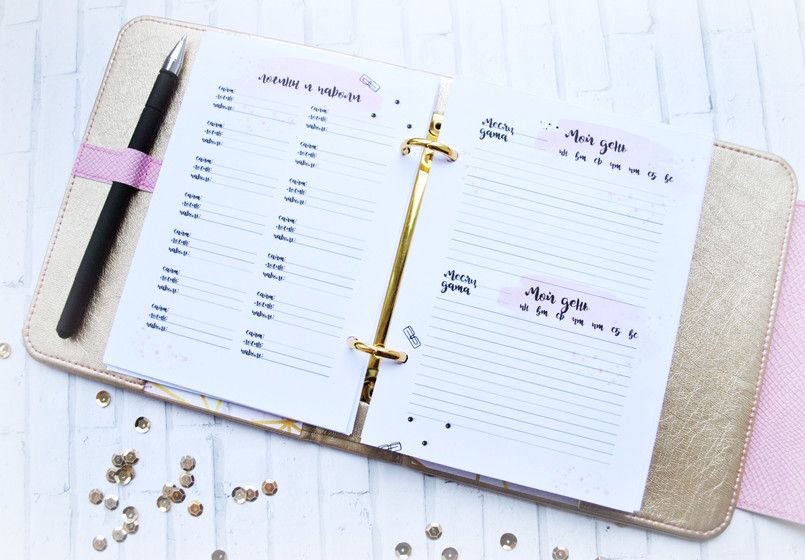 логины и пароли
сайт:
логин:
пароль:
сайт:
логин:
пароль:
сайт:
логин:
пароль:
сайт:
логин:
пароль:
сайт:
логин:
пароль:
сайт:
логин:
пароль:
сайт:
логин:
пароль:
сайт:
логин:
пароль:
сайт:
логин:
пароль:
сайт:
логин:
пароль:
сайт:
логин:
пароль:
сайт:
логин:
пароль:
сайт:
логин:
пароль:
сайт:
логин:
пароль:
Месяц
дата
Мой день
пн вт ср чт пт сб вс
Месяц
дата
Мой день
пн вт ср чт пт сб вс